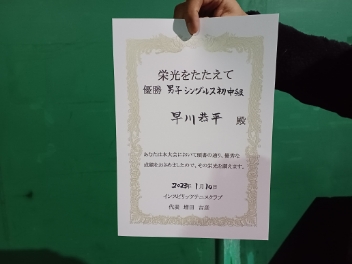 栄光をたたえて
優勝 男子シングルス初中級
早川恭平 殿
あなたは本大会において頭書の通り、優秀な
成績をおさめましたので、その栄光を讃えます。
2023年 1月10日
インスピリッツテニスクラブ
代表